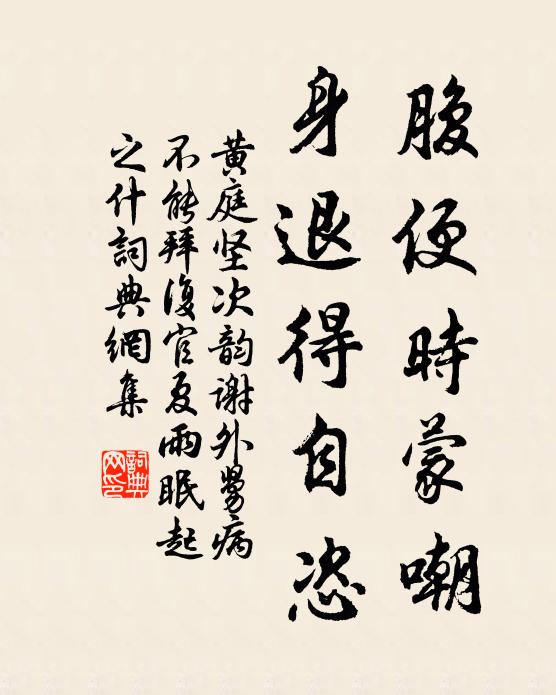 腹便時蒙嘲
身退得自恣
黄庭坚次韵谢外舅病
不能拜復官夏雨眠起
之什詞典網集
詞典
网印